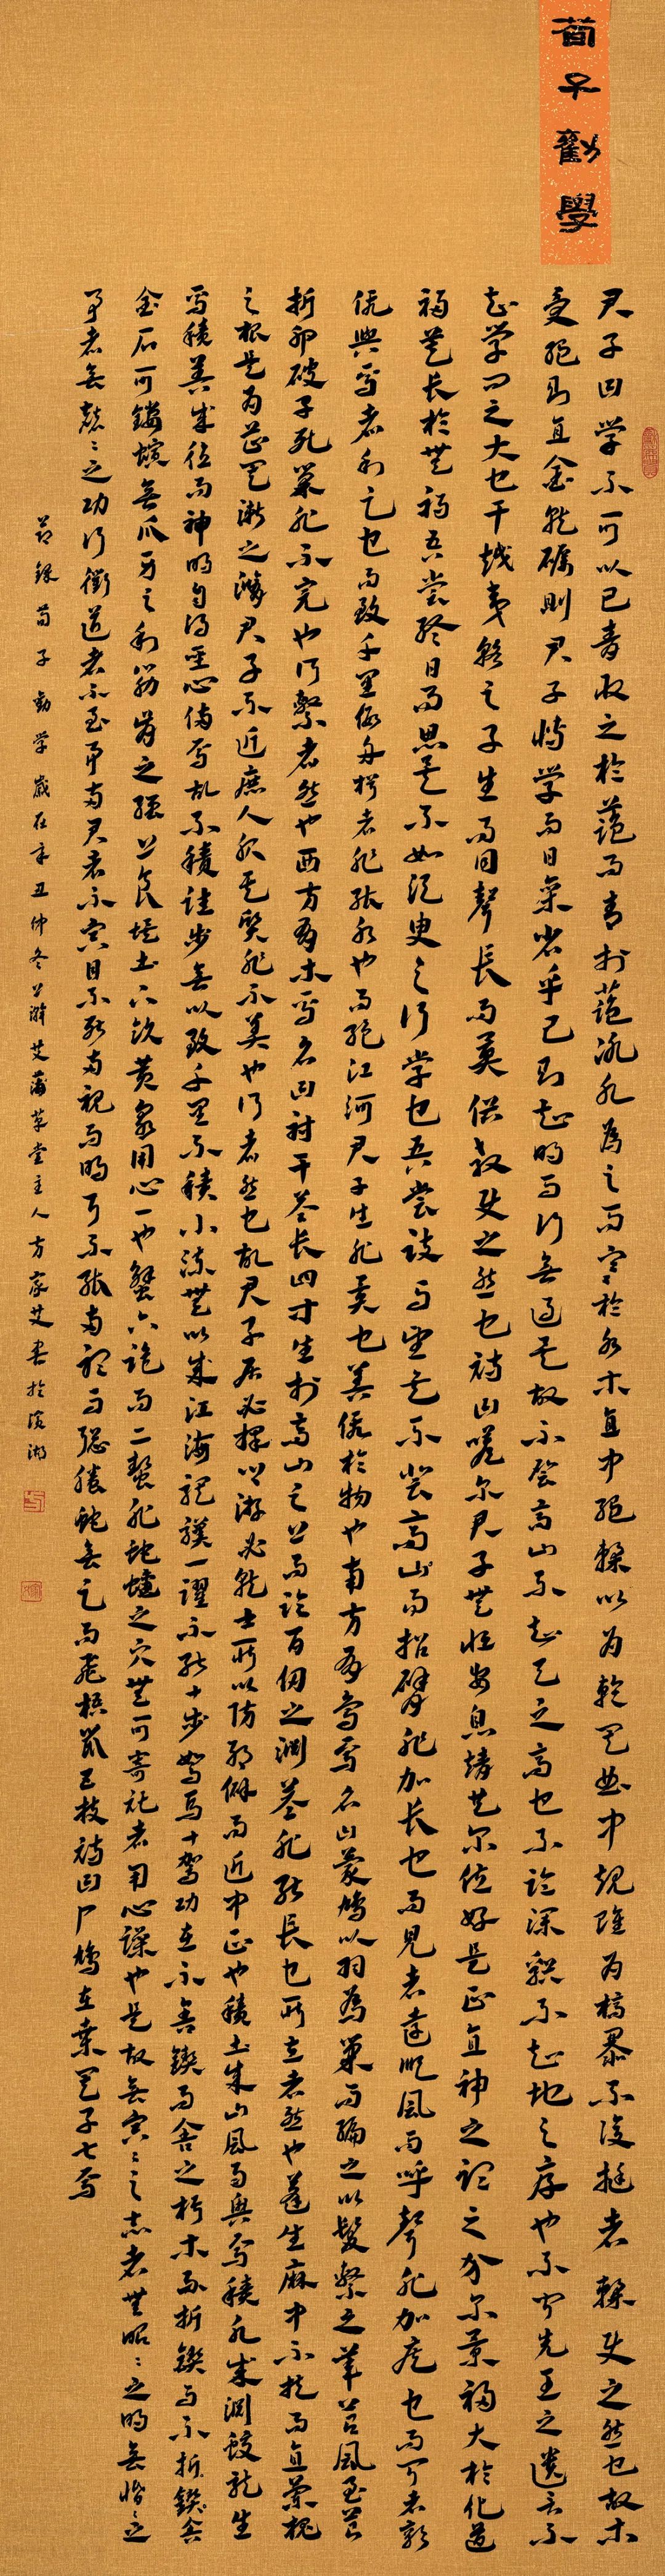 荀子勸學
君子曰学不可以已青取之於蓝而青於蓝冰水為之而寒於水木直中绳輮以为轮其曲中规雖为槁暴不復挺者輮使之然也故木
受绳则直金就砺则君子博学而日参省乎己则知明而行無过矣故不登高山不知天之高也不临深谿不知地之厚也不闻先王之遗言不
知学问之大也干越夷貉之子生而同聲长而异俗教使之然也诗曰嗟尔君子無恒安息靖共尔位好是正直神之听之介尔景福大於化道
福莫长於無禍吾尝终日而思矣不如须臾之所学也吾尝跂而望矣不如登高山而招臂非加长也而见者远顺風而呼聲非加疾也而闻者彰
假舆馬者利足也而致千里假舟楫者非能水也而绝江河君子生非異也善假於物也南方有鸟焉名曰蒙鸠以羽為巢而编之以髪繫之苇苕風至苕
折卵破子死巢非不完也所繫者然也西方有木焉名曰射干茎长四寸生於高山之上而临百仞之渊茎非能长也所立者然也蓬生麻中不扶而直蘭槐
之根是为芷其渐之滫君子不近庶人不服其質非不美也所渐者然也故君子居必擇鄉游必就士所以防邪僻而近中正也積土成山風雨興焉積水成渊蛟龙生
焉積善成德而神明自得聖心備焉故不積跬步無以致千里不積小流無以成江海骐骥一躍不能十步駑馬十駕功在不舍鍥而舍之朽木不折鍥而不舍
金石可鏤螾無爪牙之利筋骨之强上食埃土下饮黄泉用心一也蟹六跪而二螯非蛇蟺之穴無可寄託者用心躁也是故無冥冥之志者無昭昭之明無惛惛之
事者無赫赫之功行衢道者不至事两君者不容目不能两視而明耳不能两听而聪螣蛇無足而飛梧鼠五技诗曰尸鳩在桑其子七焉
節録荀子勸学歲在辛丑仲冬艾蒲草堂主人方家艾書於滨湖